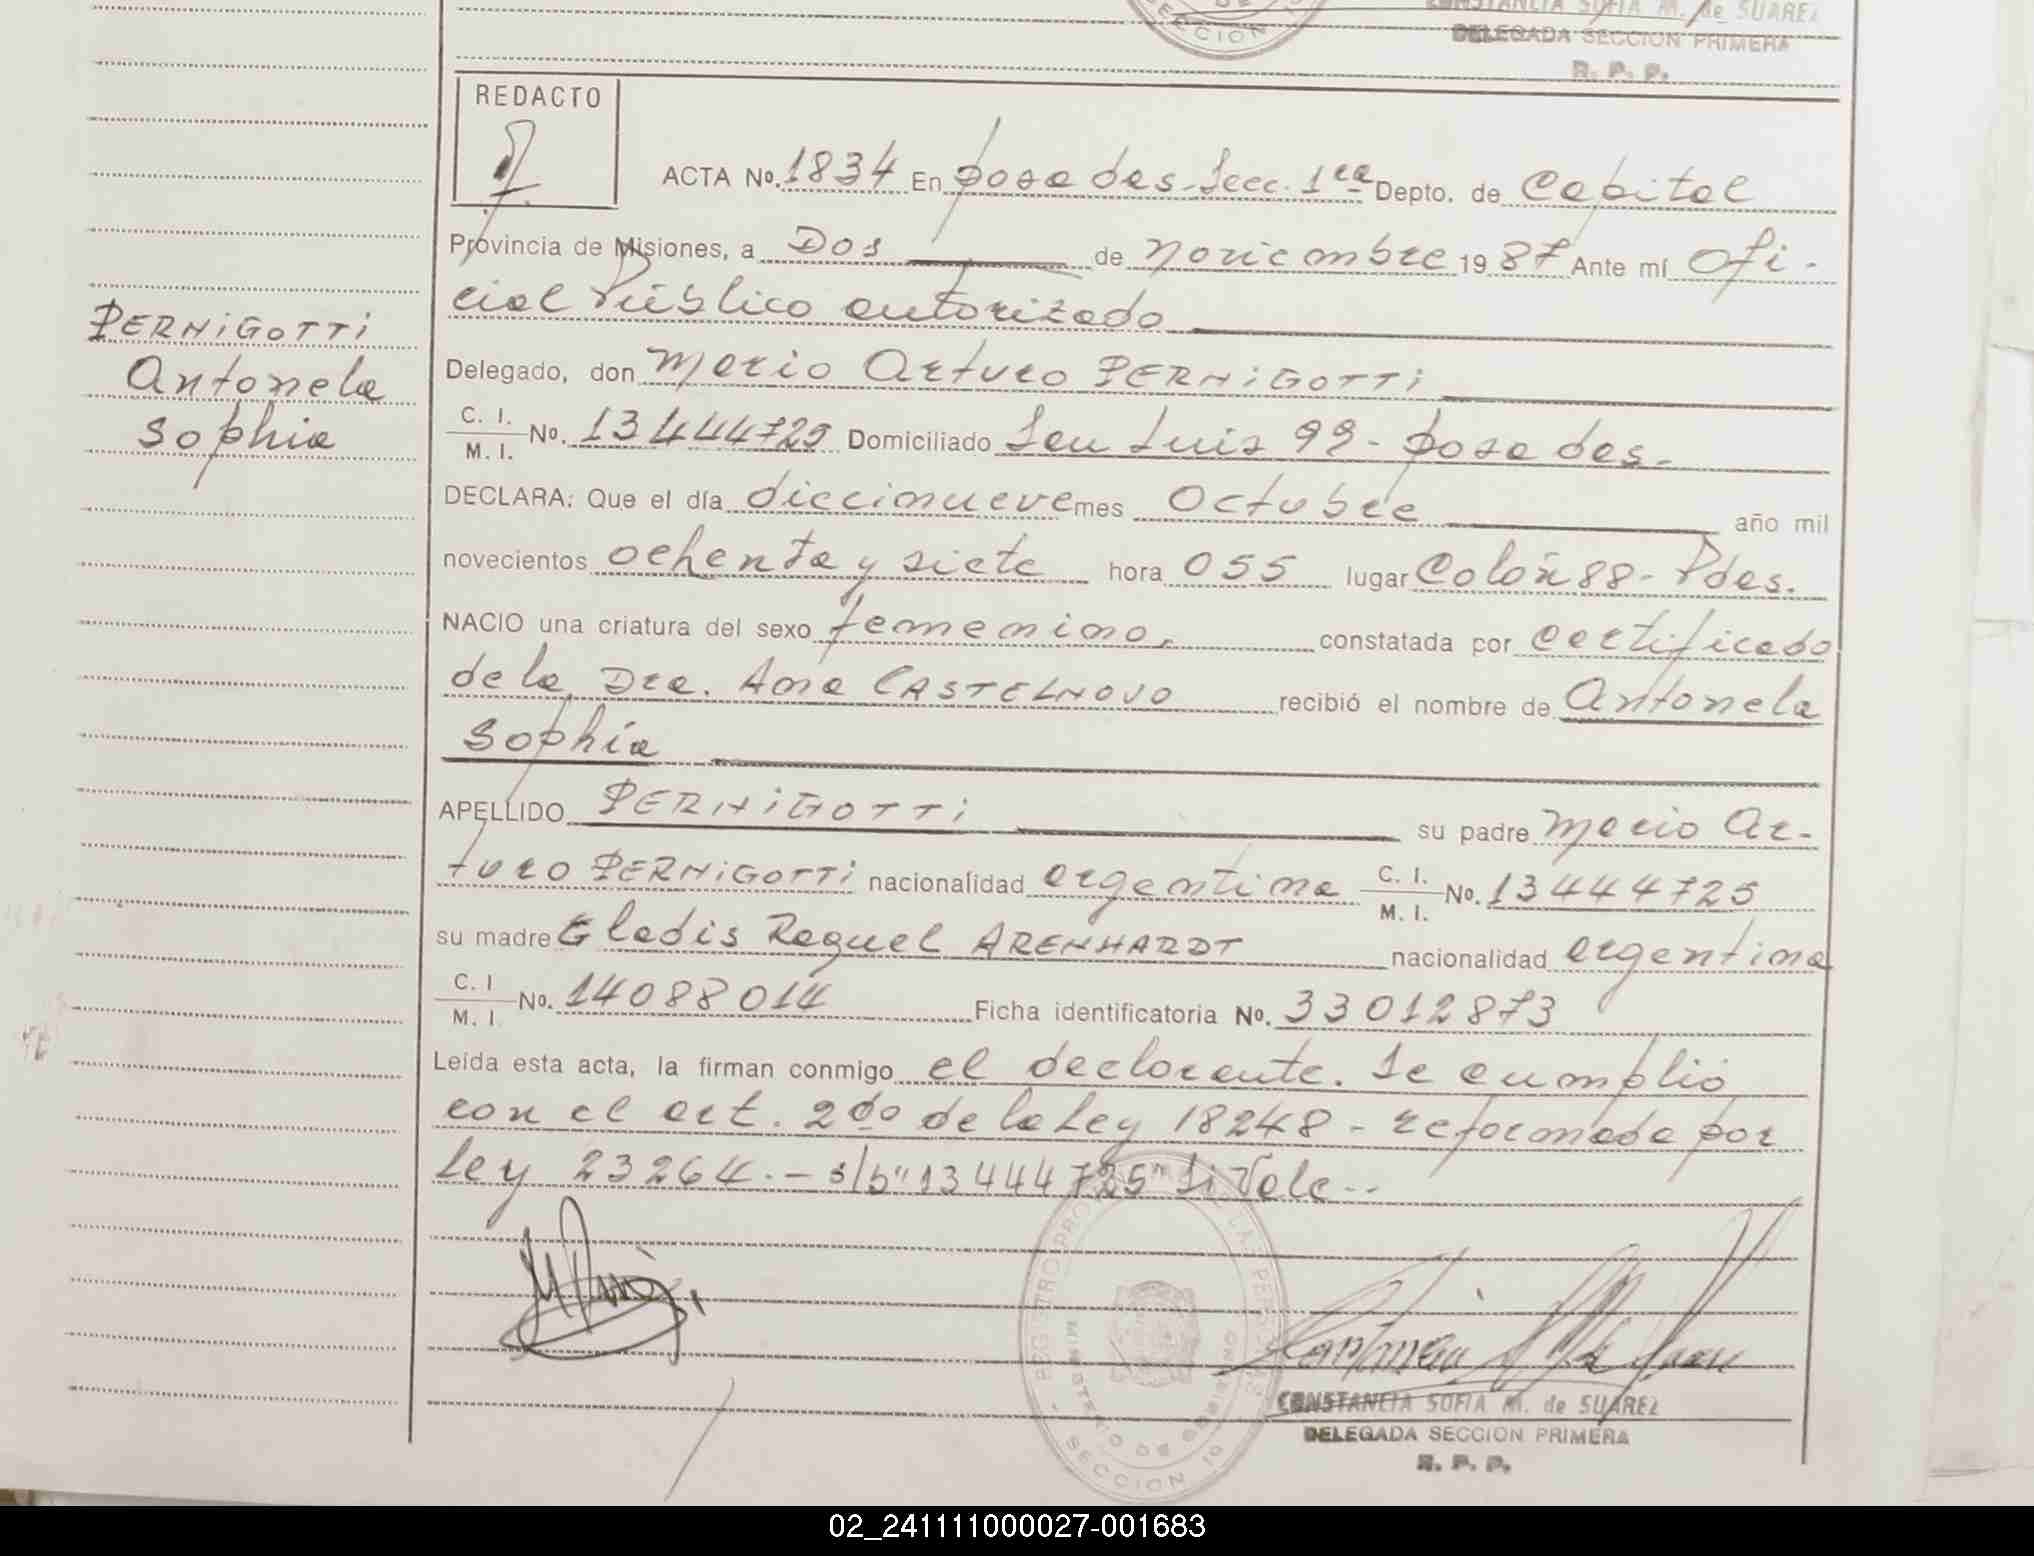 CONSTANCIA SOFIA M. de SUAREZ
DELEGADA SECCION PRIMERA
R. P. P.
SECCION
REDACTO
ACTA No. 1834 En Posadas-Secc. 1ra Depto. de Capital
Provincia de Misiones, a Dos de noviembre 19 87 Ante mí Ofi-
cial Público autorizado
PERNIGOTTI
Antonela
Sophia
Delegado, don Mario Arturo PERNIGOTTI
C. I.
M. I. No. 13444725 Domiciliado San Luis 99- Posadas.
DECLARA: Que el día diecinueve mes Octubre año mil
novecientos ochenta y siete hora 055 lugar Colón 88- Pdas.
NACIO una criatura del sexo femenino, constatada por certificado
de la Dra. Ana CASTELNOVO recibió el nombre de Antonela
Sophia
APELLIDO PERNIGOTTI su padre Mario Ar-
turo PERNIGOTTI nacionalidad argentina C. I.
M. I. No. 13444725
su madre Gladis Raquel ARENHARDT nacionalidad argentina
C. I
M. I. No. 14088014 Ficha identificatoria No. 33012873
Leída esta acta, la firman conmigo el declarante. Se cumplió
con el art. 2do de la Ley 18248 - reformada por
Ley 23264.- s/b "13444725" Si Vale--
REGISTRO PROVINCIAL DE LAS PERSONAS
MINISTERIO DE GOBIERNO
SECCION 1a
CONSTANCIA SOFIA M. de SUAREZ
DELEGADA SECCION PRIMERA
R. P. P.
02_241111000027-001683